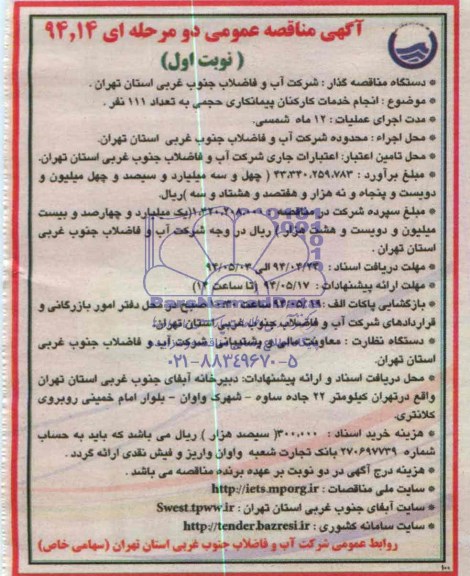 آگهی مناقصه عمومی دو مرحله ای ۹۴,۱۴
( نوبت اول)
* دستگاه مناقصه گذار : شرکت آب و فاضلاب جنوب غربی استان تهران .
* موضوع : انجام خدمات کارکنان پیمانکاری حجمی به تعداد ۱۱۱ نفر .
* مدت اجرای عملیات : ۱۲ ماه شمسی.
* محل اجراء : محدوده شرکت آب و فاضلاب جنوب غربی استان تهران.
* محل تامین اعتبار: اعتبارات جاری شرکت آب و فاضلاب جنوب غربی استان تهران.
* مبلغ برآورد : ۴۳,۳۴۰,۲۵۹,۷۸۳ ( چهل و سه میلیارد و سیصد و چهل میلیون و
دویست و پنجاه و نه هزار و هفتصد و هشتاد و سه )ریال.
* مبلغ سپرده شرکت در مناقصه (یک میلیارد و چهارصد و بیست
میلیون و دویست و هشت هزار ) ریال در وجه شرکت آب و فاضلاب جنوب غربی
استان تهران .
* مهلت دریافت اسناد : الی ۹۴/۰۵/۰۳
* مهلت ارائه پیشنهادات : ۹۴/۰۵/۱۷ (تا ساعت ۱۴)
* بازگشایی پاکات الف : ساعت صبح در محل دفتر امور بازرگانی و
قراردادهای شرکت آب و فاضلاب جنوب غربی استان تهران.
* دستگاه نظارت : معاونت مالی و پشتیبانی شرکت آب و فاضلاب جنوب غربی
استان تهران.
۰۲۱-۸۸۳۴۹۶۷۰-۵
* محل دریافت اسناد و ارائه پیشنهادات: دبیرخانه آبفای جنوب غربی استان تهران
واقع درتهران کیلومتر ۲۲ جاده ساوه - شهرک واوان - بلوار امام خمینی روبروی
کلانتری.
* هزینه خرید اسناد : ۳۰۰,۰۰۰( سیصد هزار ) ریال می باشد که باید به حساب
شماره ۲۷۰۶۹۷۷۳۹ بانک تجارت شعبه واوان واریز و فیش نقدی ارائه گردد .
* هزینه درج آگهی در دو نوبت بر عهده برنده مناقصه می باشد .
* سایت ملی مناقصات : http://iets.mporg.ir
* سایت آبفای جنوب غربی استان تهران : Swest.tpww.ir
* سایت سامانه کشوری : http://tender.bazresi.ir
روابط عمومی شرکت آب و فاضلاب جنوب غربی استان تهران (سهامی خاص)